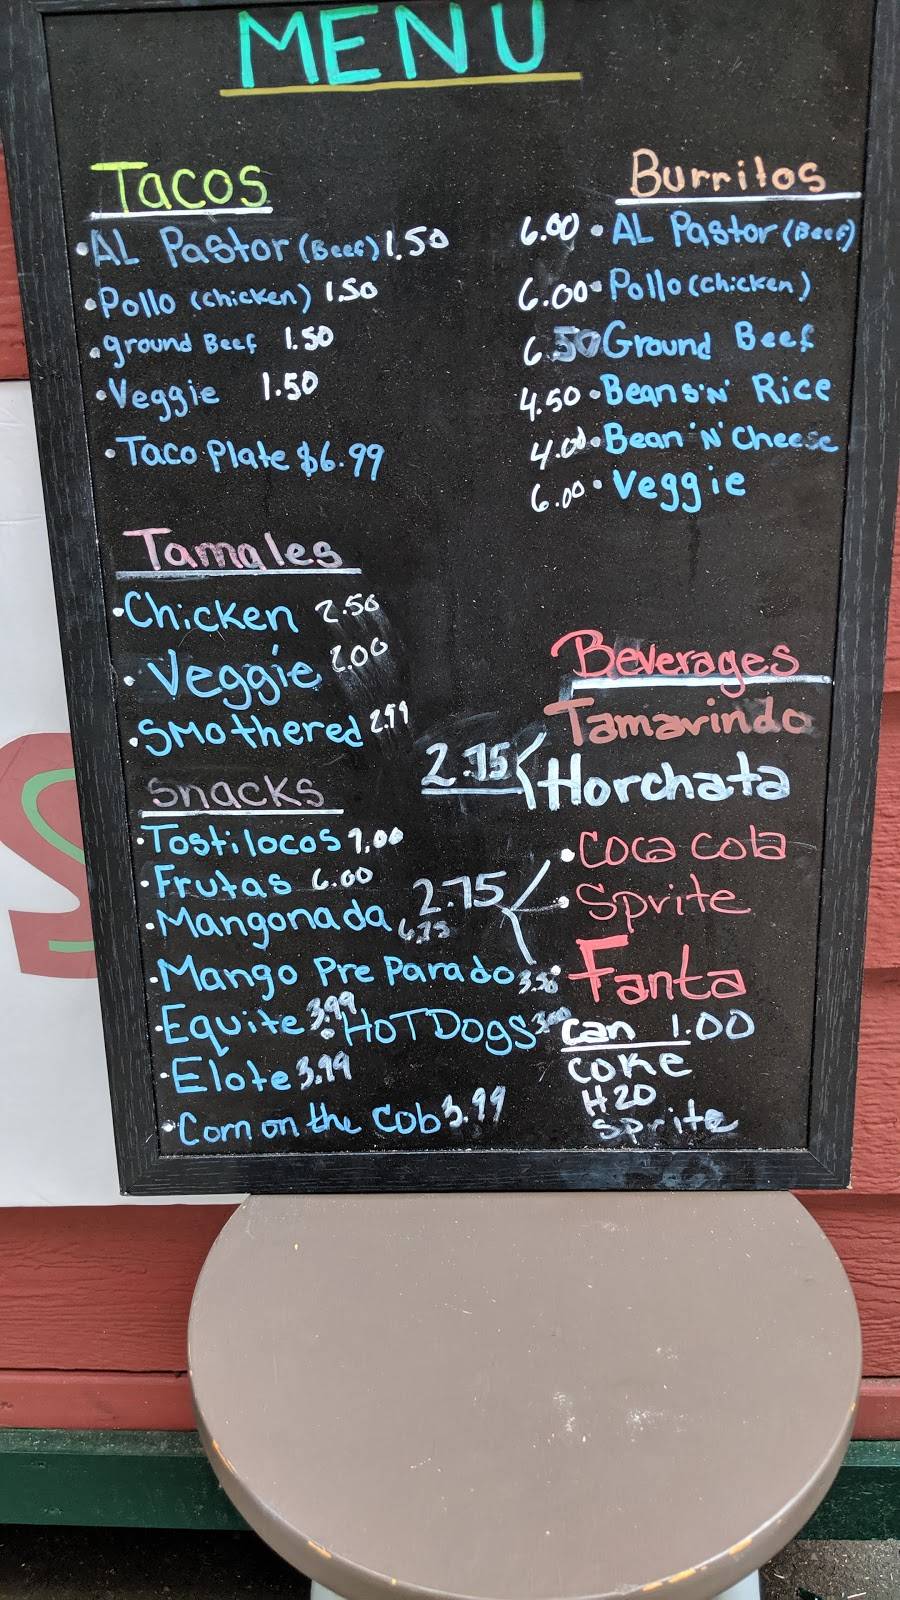 MENU
Tacos
• AL Pastor (Beef) 1.50
• Pollo (chicken) 1.50
• ground Beef 1.50
• Veggie 1.50
• Taco Plate $6.99
Burritos
6.00 • AL Pastor (Beef)
6.00 • Pollo (chicken)
6.50 Ground Beef
4.50 • Beans 'N' Rice
4.00 • Bean 'N' Cheese
6.00 • Veggie
Tamales
• Chicken 2.50
• Veggie 2.00
• Smothered 2.99
Snacks
• Tostilocos 7.00
• Frutas 6.00
• Mangonada 6.75
• Mango Pre Parado 3.50
• Equite 3.99 • HOT DOGS 3.00
• Elote 3.99
• Corn on the Cob 3.99
Beverages
Tamarindo
2.75 Horchata
• Coca cola
2.75 • Sprite
Fanta
Can 1.00
Coke
H2O
Sprite